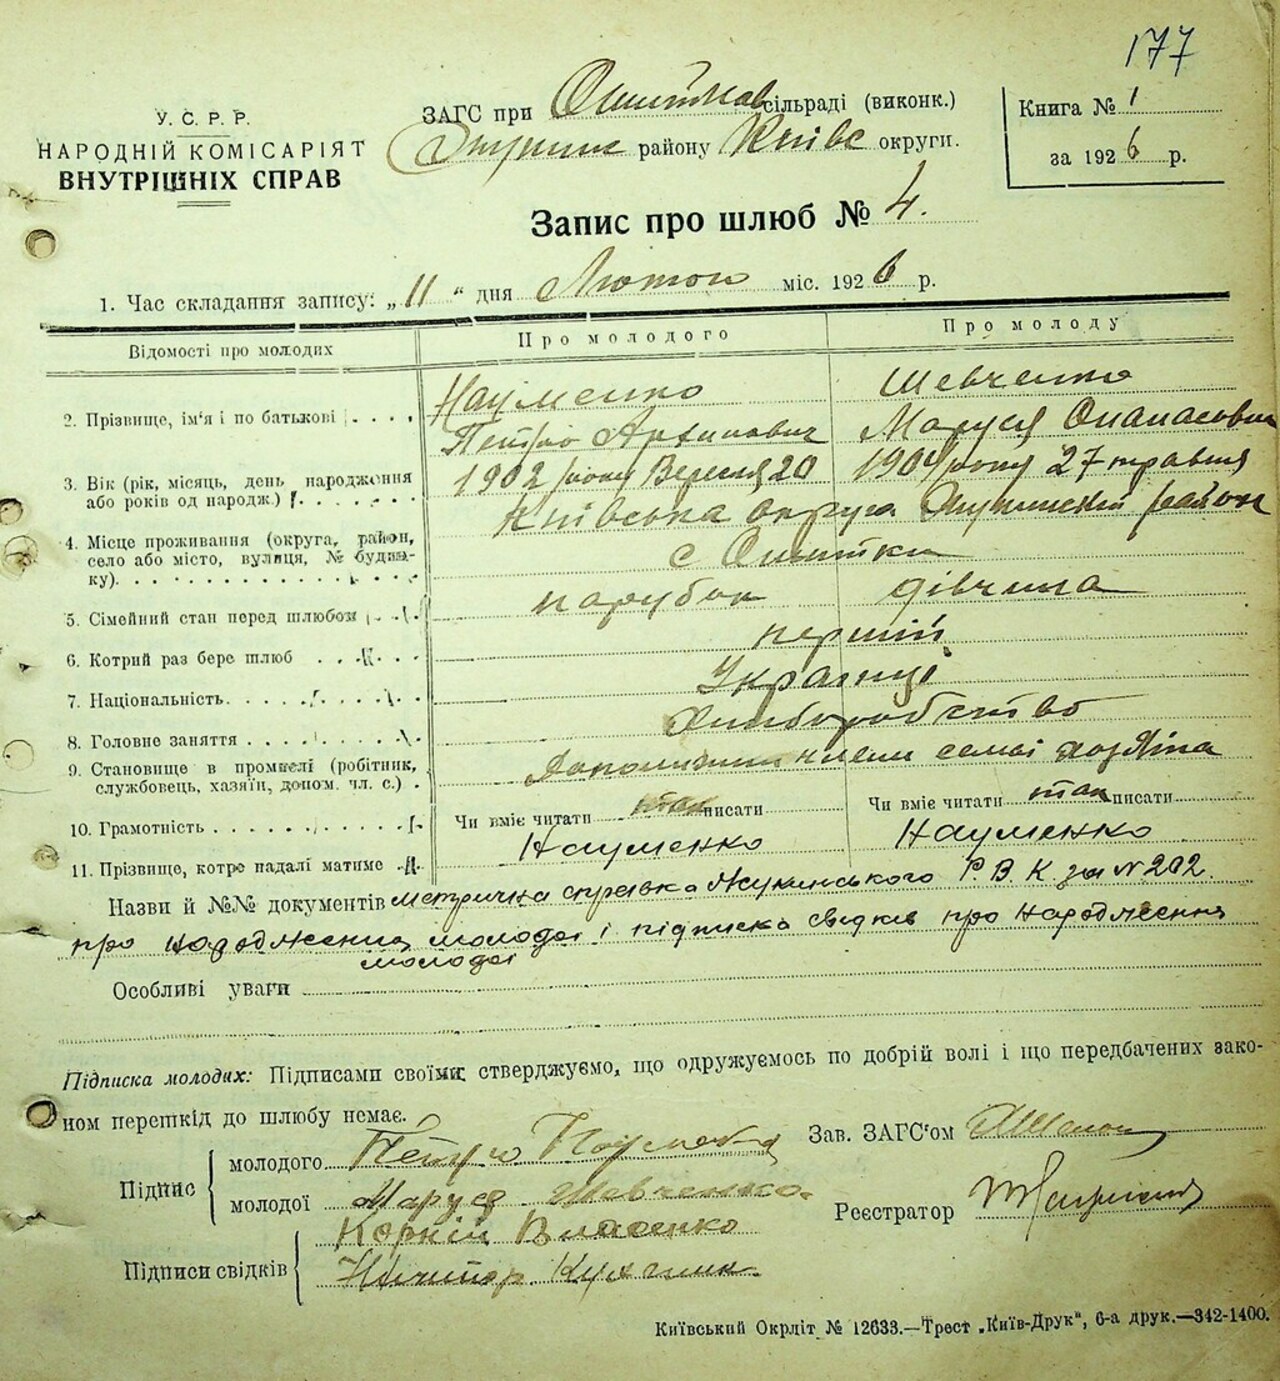 177
У.С.Р.Р.
НАРОДНІЙ КОМІСАРІЯТ
ВНУТРІШНІХ СПРАВ
ЗАГС при Ошитков сільраді (виконк.)
району Київс округи.
Книга № 1
за 1926 р.
Запис про шлюб № 4.
1. Час складання запису: „11“ дня Лютого міс. 1926 р.
Відомості про молодих
Про молодого
Про молоду
2. Прізвище, ім'я і по батькові
Науменко
Петро Архипович
Шевченко
Маруся Опанасовна
3. Вік (рік, місяць, день народження або років од народж.)
1902 року Вересня 20
1904 року 27 травня
4. Місце проживання (округа, район, село або місто, вулиця, № будинку).
Київська округа Жукинський район
с Ошитки
5. Сімейний стан перед шлюбом
парубок
дівчина
6. Котрий раз бере шлюб
перший
7. Національність
Українці
8. Головне заняття
Хлиборобство
9. Становище в промислі (робітник, службовець, хазяїн, допом. чл. с.)
семьі хазяїна
10. Грамотність
Чи вміє читати так писати
Чи вміє читати так писати
11. Прізвище, котре надалі матиме
Науменко
Науменко
Назви й №№ документів метрична справка Жукинського Р.В.К. за № 202.
про народження молодої і підписка свідків про народження
молодої
Особливі уваги
Підписка молодих: Підписами своїми стверджуємо, що одружуємось по добрій волі і що передбачених зако-
ном перешкід до шлюбу немає.
Підпис
молодого Петро Науменко
молодої Маруся Шевченко.
Зав. ЗАГС'ом
Реєстратор
Підписи свідків
Корній Власенко
Ничипор
Київський Окрліт № 12633.—Трест „Київ-Друк“, 6-а друк.—342-1400.